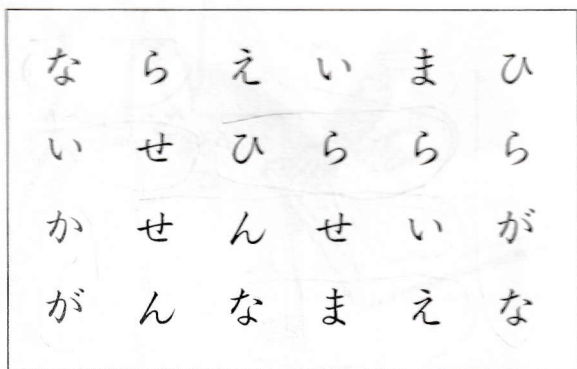 な ら え い ま ひ
い せ ひ ら ら ら
か せ ん せ い が
が ん な ま え な